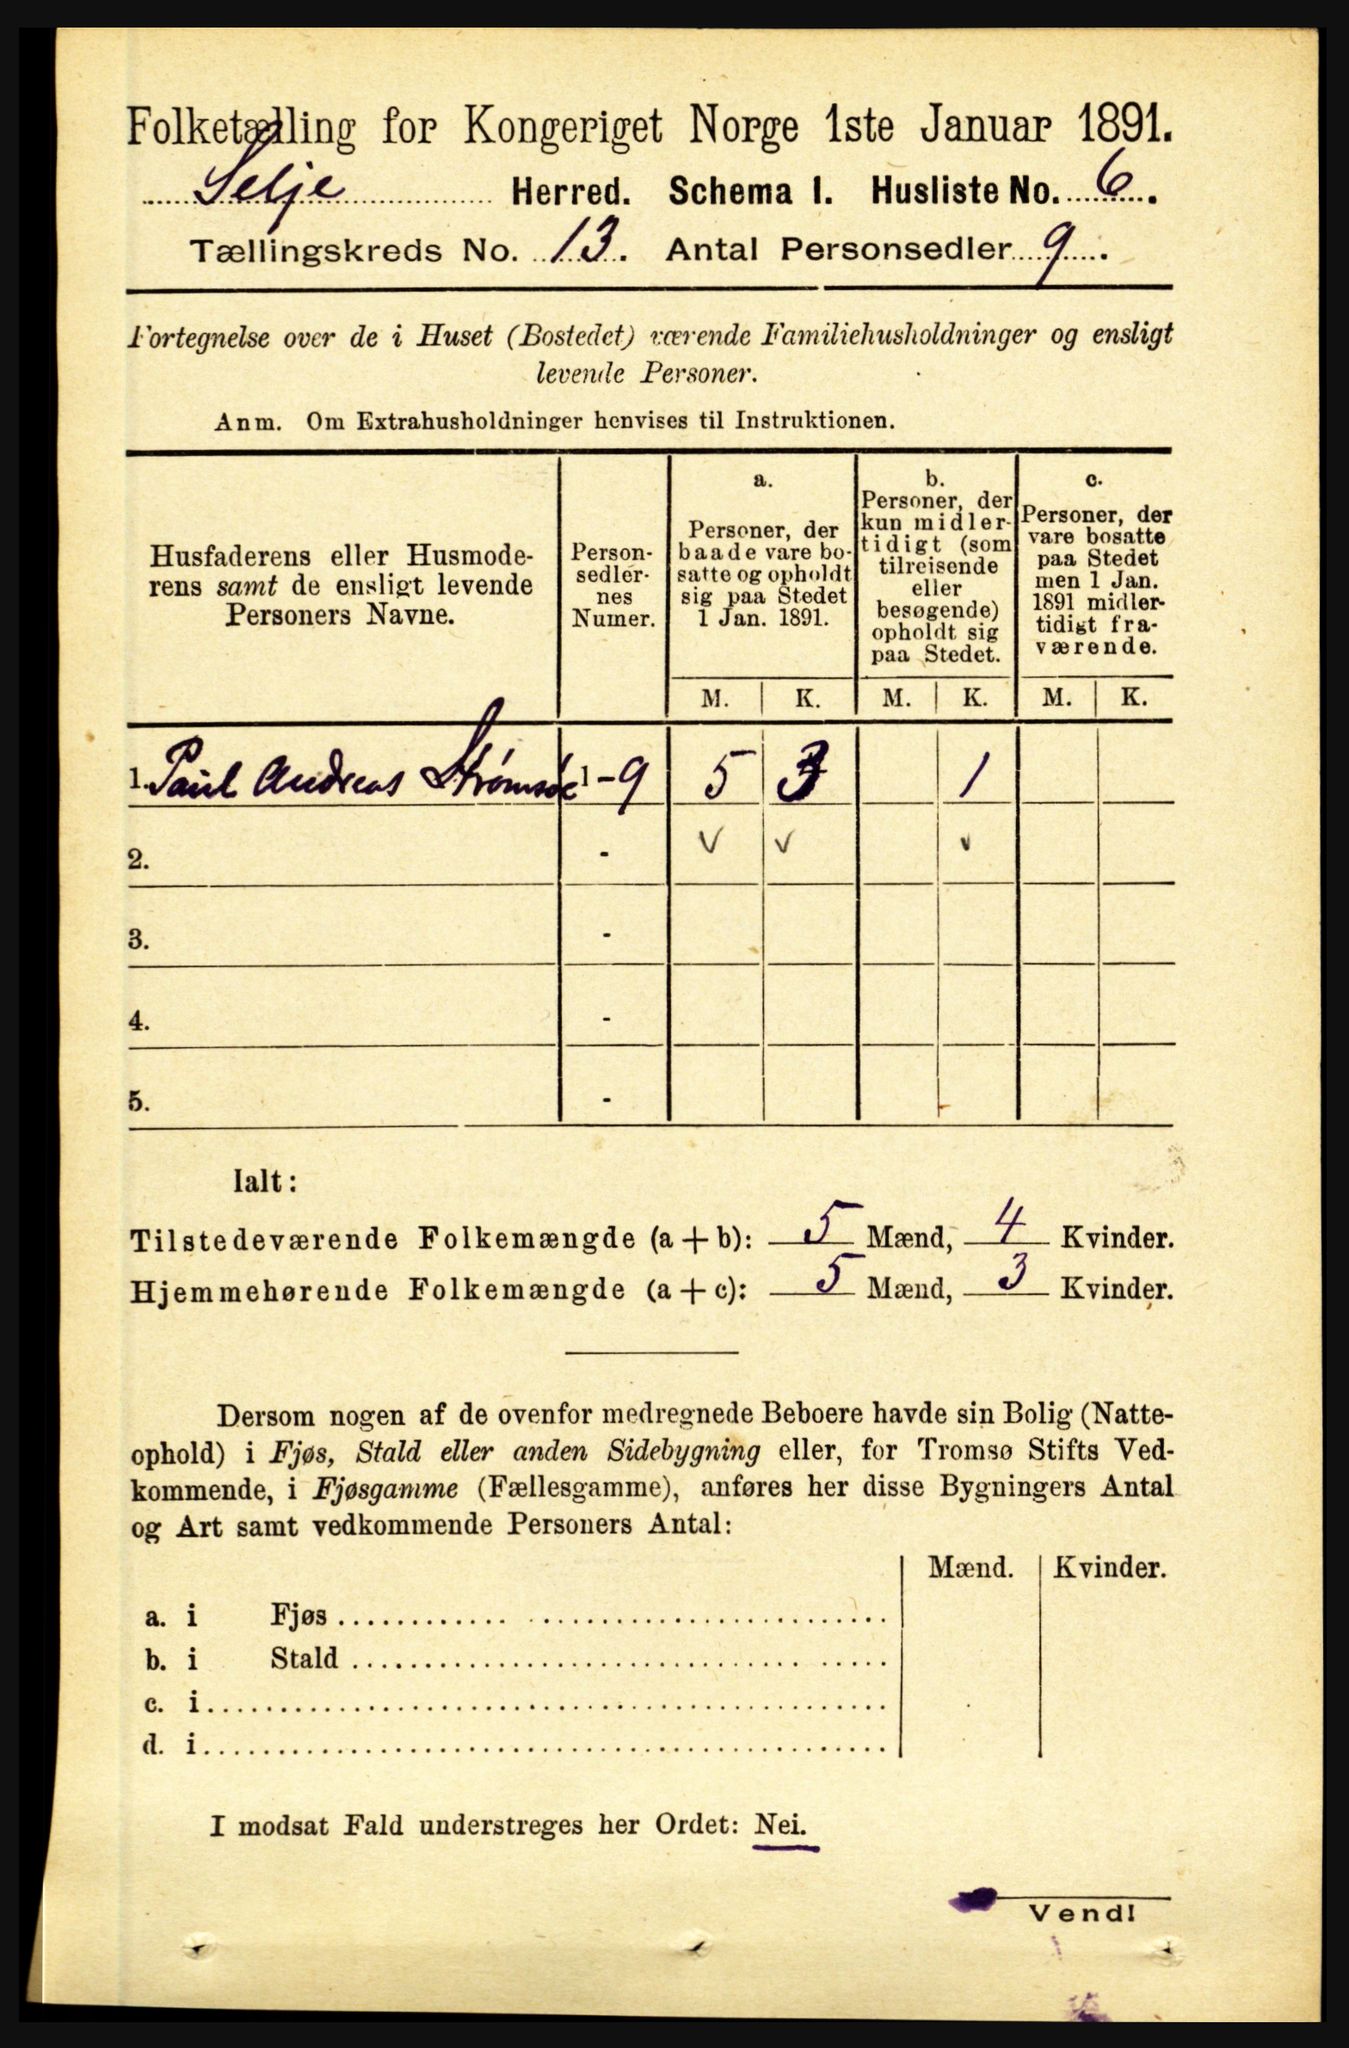 Folketælling for Kongeriget Norge 1ste Januar 1891.
Selje Herred. Schema 1. Husliste No. 6.
Tællingskreds No. 13. Antal Personsedler 9.
Fortegnelse over de i Huset (Bostedet) værende Familiehusholdninger og ensligt
levende Personer.
Anm. Om Extrahusholdninger henvises til Instruktionen.
Husfaderens eller Husmode-
rens samt de ensligt levende
Personers Navne.
Person-
sedler-
nes
Numer.
a.
Personer, der
baade vare bo-
satte og opholdt
sig paa Stedet
1 Jan. 1891.
b.
Personer, der
kun midler-
tidigt (som
tilreisende
eller
besøgende)
opholdt sig
paa Stedet.
c.
Personer, der
vare bosatte
paa Stedet
men 1 Jan.
1891 midler-
tidigt fra-
værende.
M. K. M. K. M. K.
1. Paul Andreas Strømsøe 1-9 5 3 1
2. - v v v
3. -
4. -
5. -
Ialt:
Tilstedeværende Folkemængde (a+b): 5 Mænd, 4 Kvinder.
Hjemmehørende Folkemængde (a+c): 5 Mænd, 3 Kvinder.
Dersom nogen af de ovenfor medregnede Beboere havde sin Bolig (Natte-
ophold) i Fjøs, Stald eller anden Sidebygning eller, for Tromsø Stifts Ved-
kommende, i Fjøsgamme (Fællesgamme), anføres her disse Bygningers Antal
og Art samt vedkommende Personers Antal:
Mænd. Kvinder.
a. i Fjøs
b. i Stald
c. i
d. i
I modsat Fald understreges her Ordet: Nei.
Vend!